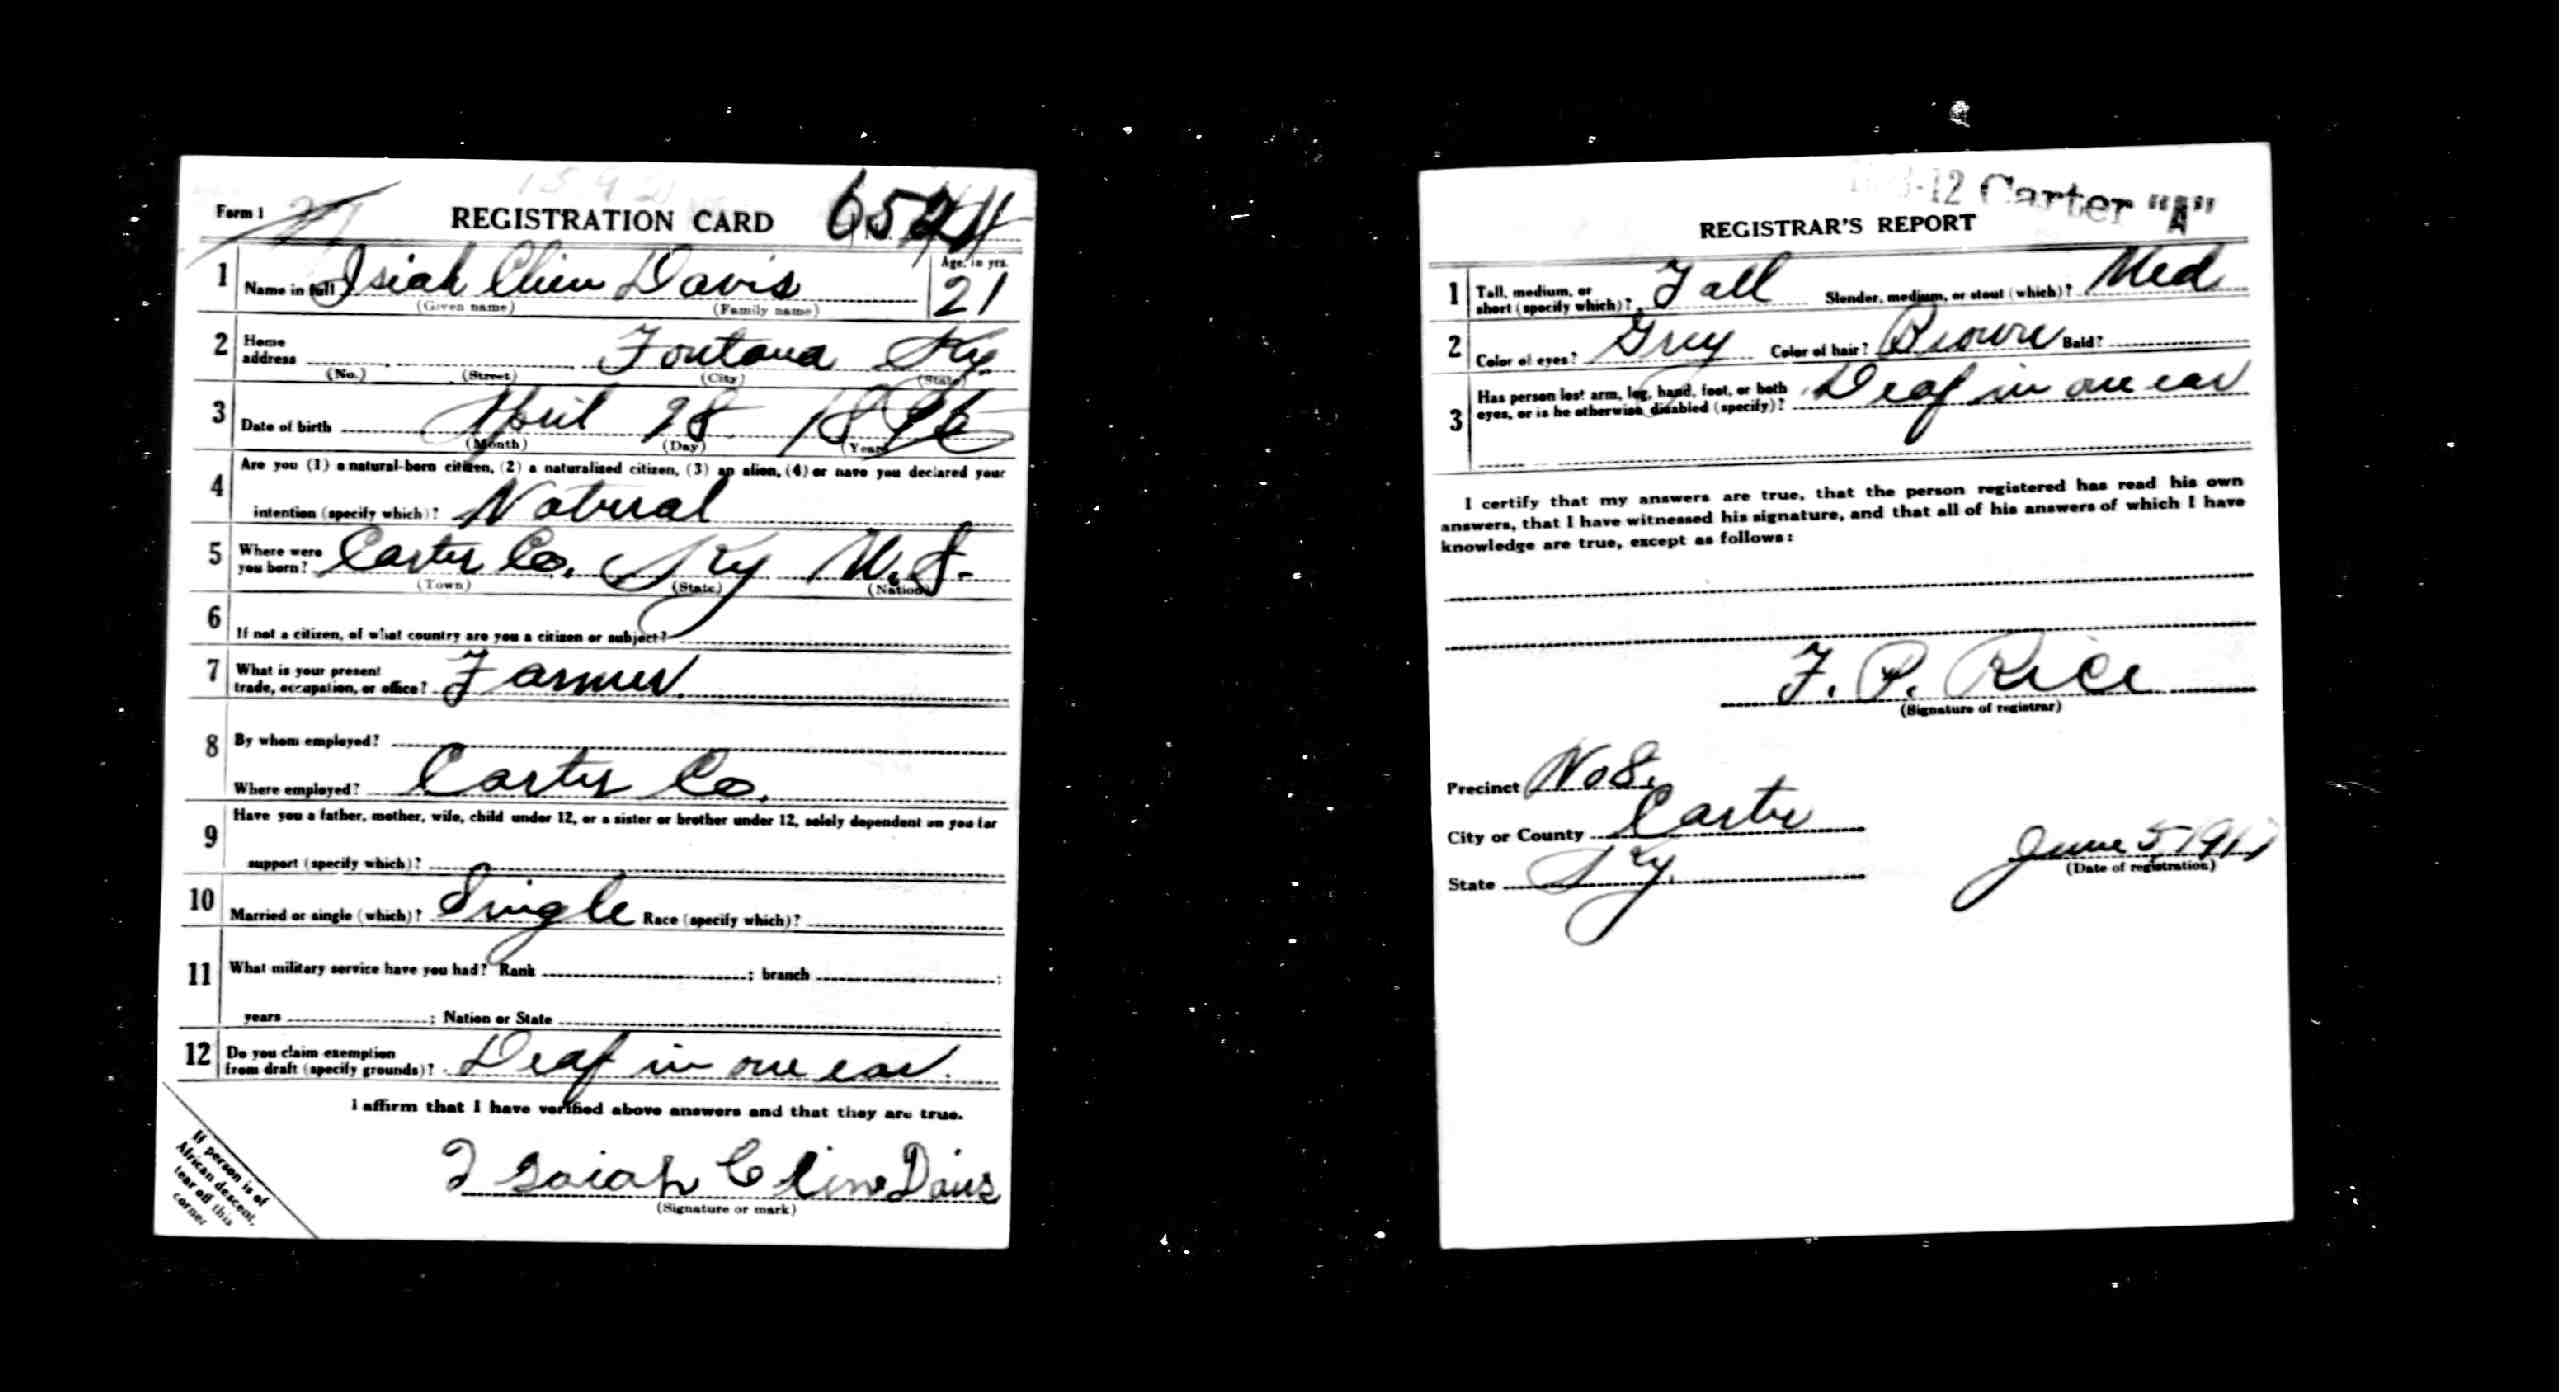 Form 1
REGISTRATION CARD
1 Name in full Isiah Davis 21
Age, in yrs.
(Given name) (Family name)
2 Home address Fontana Ky
(No.) (Street) (City) (State)
3 Date of birth April 28 1896
(Month) (Day) (Year)
4 Are you (1) a natural-born citizen, (2) a naturalized citizen, (3) an alien, (4) or have you declared your
intention (specify which)? Natural
5 Where were you born? Carter Co. Ky U.S.
(Town) (State) (Nation)
6 If not a citizen, of what country are you a citizen or subject?
7 What is your present
trade, occupation, or office? Farmer
8 By whom employed?
Where employed? Carter Co.
9 Have you a father, mother, wife, child under 12, or a sister or brother under 12, solely dependent on you for
support (specify which)?
10 Married or single (which)? Single Race (specify which)?
11 What military service have you had? Rank ; branch ;
years ; Nation or State
12 Do you claim exemption
from draft (specify grounds)? Deaf in one ear.
I affirm that I have verified above answers and that they are true.
Isaiah Cline Davis
(Signature or mark)
If person is of
African descent,
tear off this
corner
-12 Carter "A"
REGISTRAR'S REPORT
1 Tall, medium, or
short (specify which)? Tall Slender, medium, or stout (which)? Med
2 Color of eyes? Grey Color of hair? Brown Bald?
3 Has person lost arm, leg, hand, foot, or both
eyes, or is he otherwise disabled (specify)? Deaf in one ear
I certify that my answers are true, that the person registered has read his own
answers, that I have witnessed his signature, and that all of his answers of which I have
knowledge are true, except as follows:
F. P. Rice
(Signature of registrar)
Precinct No 8.
City or County Carter
State Ky.
June 5 1917
(Date of registration)